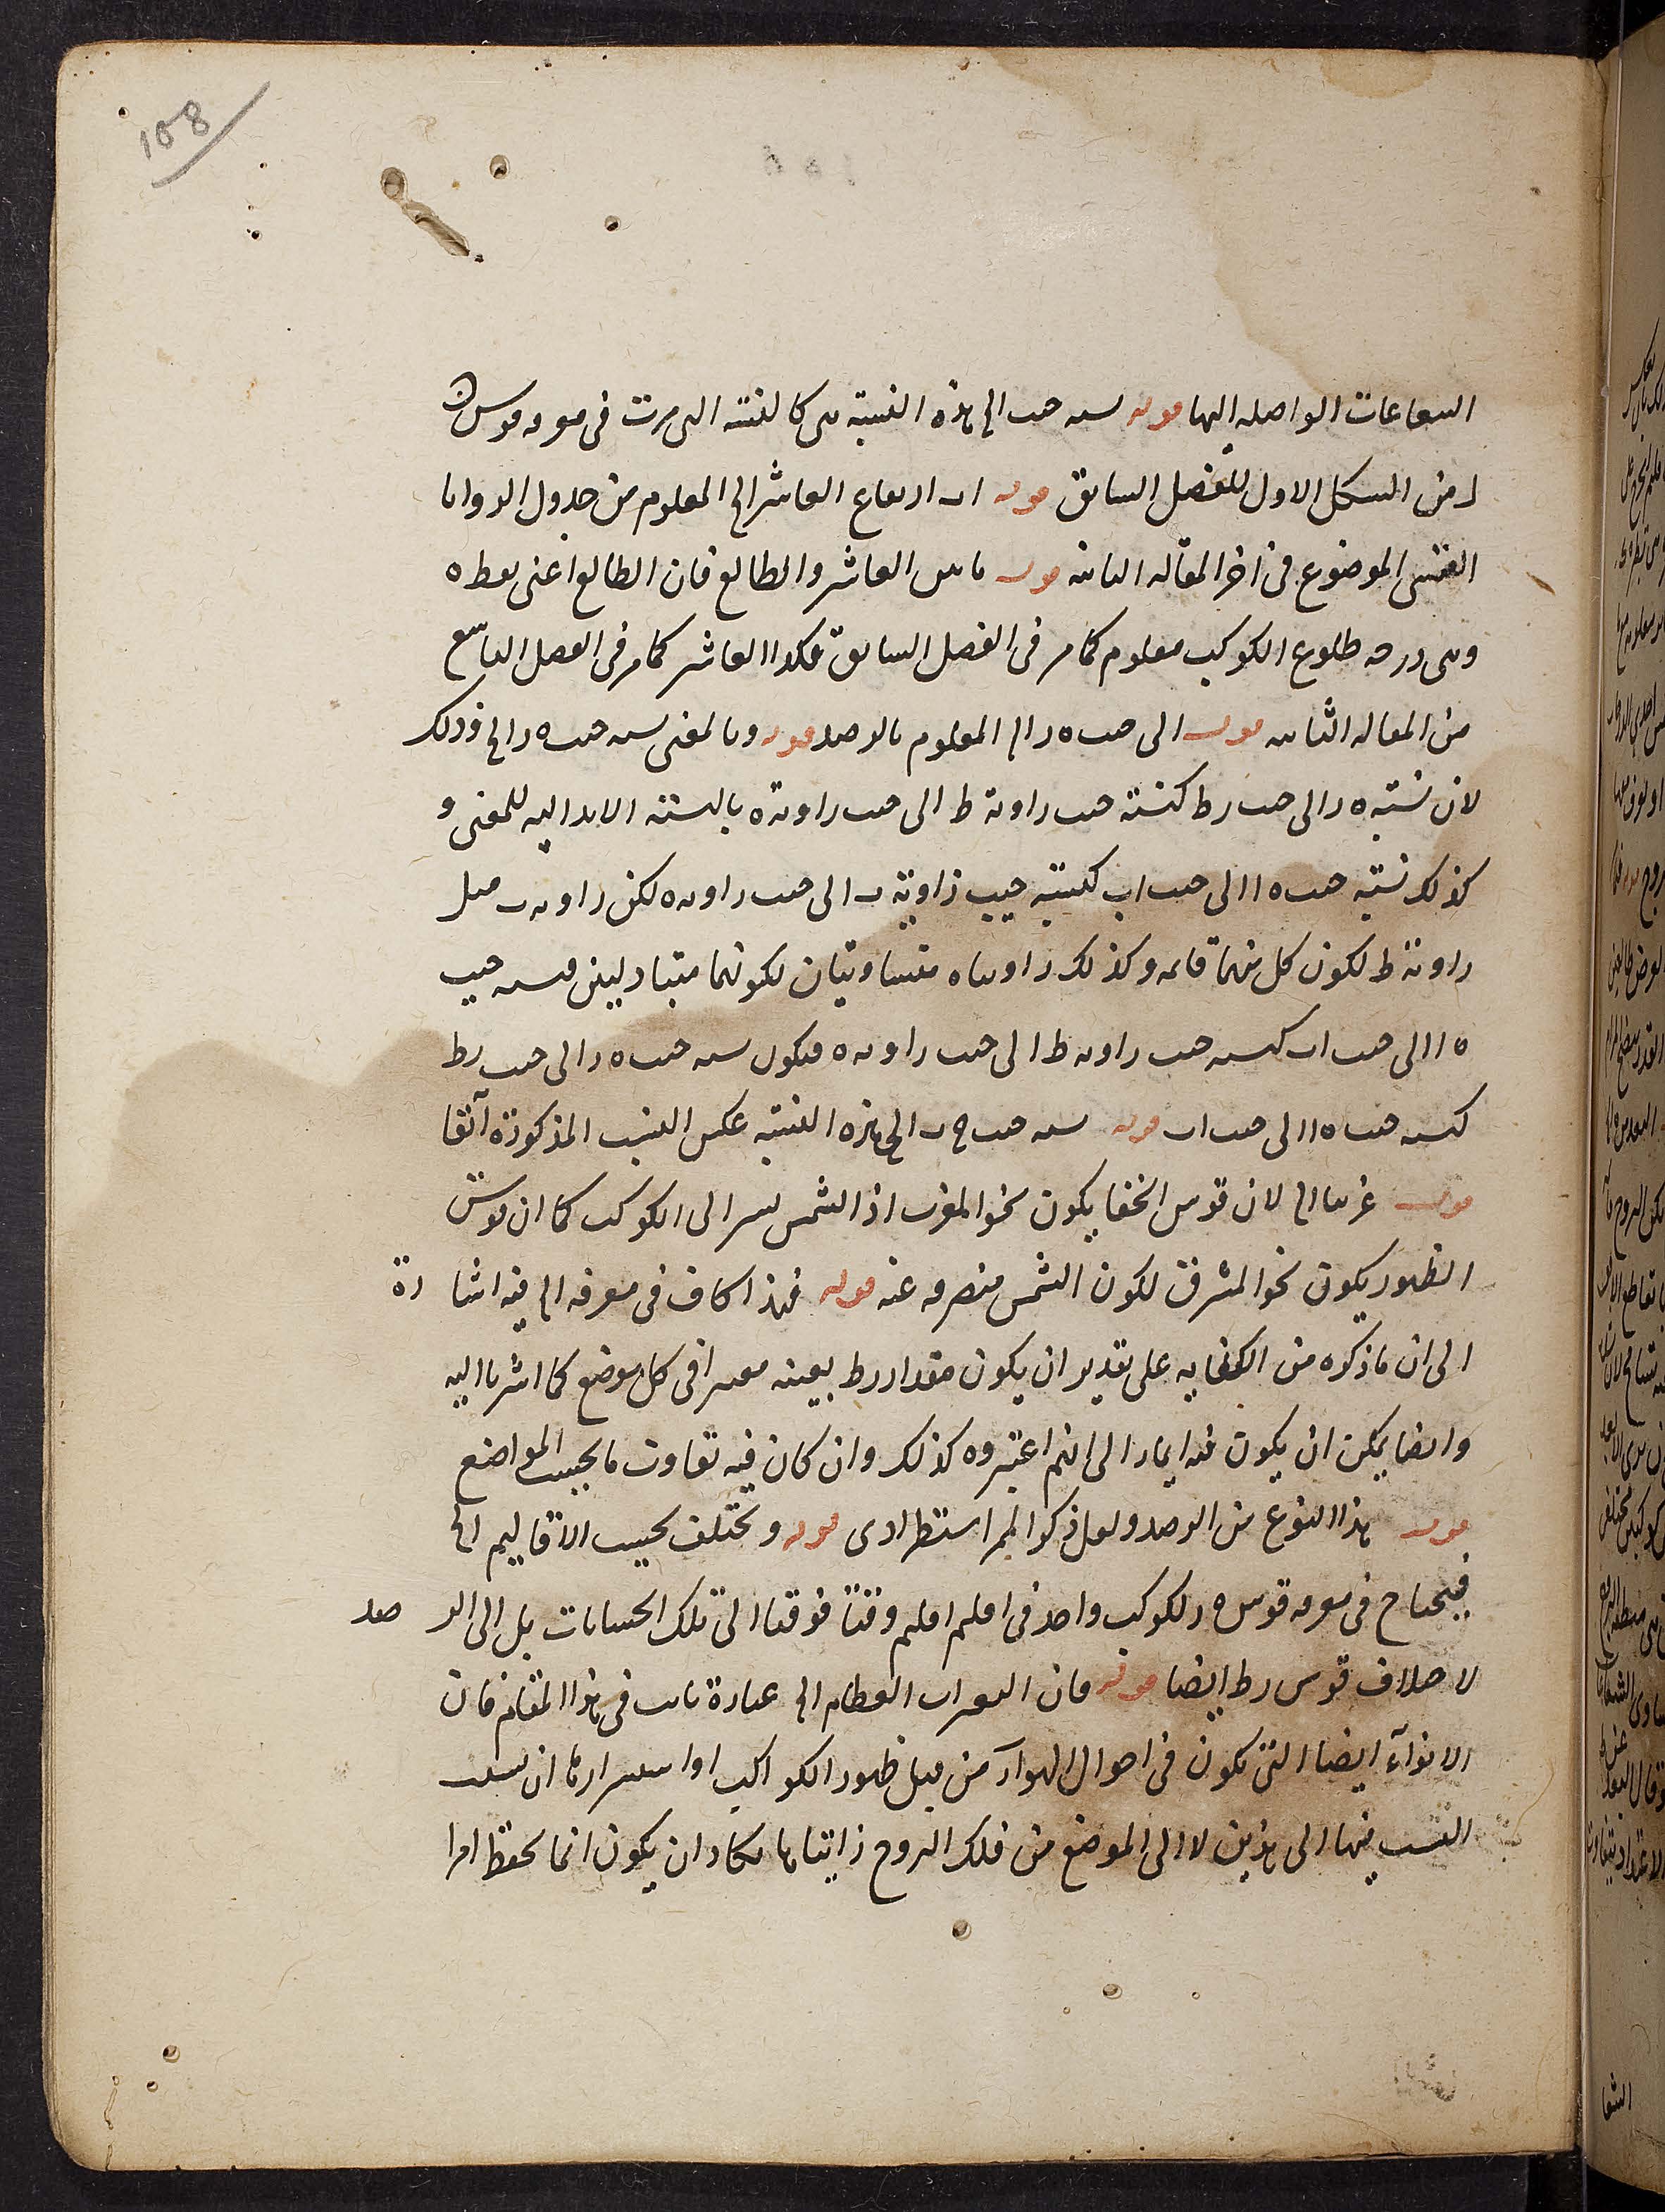 108
الشعاعات الواصله اليها قوله نسبه جيب الخ هذه النسبة هى كالنسبة التى مرت فى معرفه قوس
ا من الشكل الاول للفصل السابق قوله اب ارتفاع العاشر الخ المعلوم من جدول الزوايا
القسى الموضوع فى اخر المقاله الثانيه قوله مابين العاشر والطالع فان الطالع اعنى نقطة ه
وهى درجه طلوع الكوكب معلوم كما مر فى الفصل السابق فكذا العاشر كما مر فى الفصل التاسع
من المقاله الثانيه قوله الى جيب ه ر الخ المعلوم بالرصد قوله وبالمغنى نسبه جيب ه ر الخ وذلك
لان نسبة ه ر الى جيب رط كنسبة جيب زاوية ط الى جيب زاوية ه بالنسبه الابداليه للمغنى و
كذلك نسبة جيب ه ا الى جيب اب كنسبة جيب زاوية ب الى جيب زاويه ه لكن زاويه ب مثل
زاوية ط لكون كل منهما قائمه وكذلك زاويتاه متساويتان لكونهما متبادلين فنسبه جيب
ه ا الى جيب اب كنسبه جيب زاويه ط الى جيب زاويه ه فيكون نسبه جيب ه ر الى جيب رط
كنسبه جيب ه ا الى جيب اب قوله نسبه جيب ح ب الخ هذه النسبة عكس النسب المذكورة آنفا
قوله غربيا الخ لان قوس الخفا يكون نحو المغرب اذ الشمس تسير الى الكوكب كما ان قوس
الظهور يكون نحو المشرق لكون الشمس منصرفه عنه قوله فهذا كاف فى معرفه الخ فيه اشارة
الى ان ماذكره من الكفايه على تقدير ان يكون مقدار رط بعينه معتبرا فى كل موضع كما اشرنا اليه
وايضا يمكن ان يكون فيه ايماء الى انهم اعتبروه كذلك وان كان فيه تفاوت ما بحسب المواضع
قوله هذا النوع من الرصد ولعل ذكر الممر استطرادى قوله ويختلف بحسب الاقاليم الخ
فيحتاج فى معرفه قوس ه ر لكوكب واحد فى اقليم اقليم وقتا فوقتا الى تلك الحسابات بل الى الرصد
لاختلاف قوس رط ايضا قوله فان التغيرات العظام الخ عبارة ثابت فى هذا المقام فان
الانوآء ايضا التى تكون فى احوال الهوآء من قبل ظهور الكواكب او استتارها ان نسبت
النسب فيها الى هذين لا الى الموضع من فلك البروج رايتها تكاد ان يكون انما تحفظ امرا